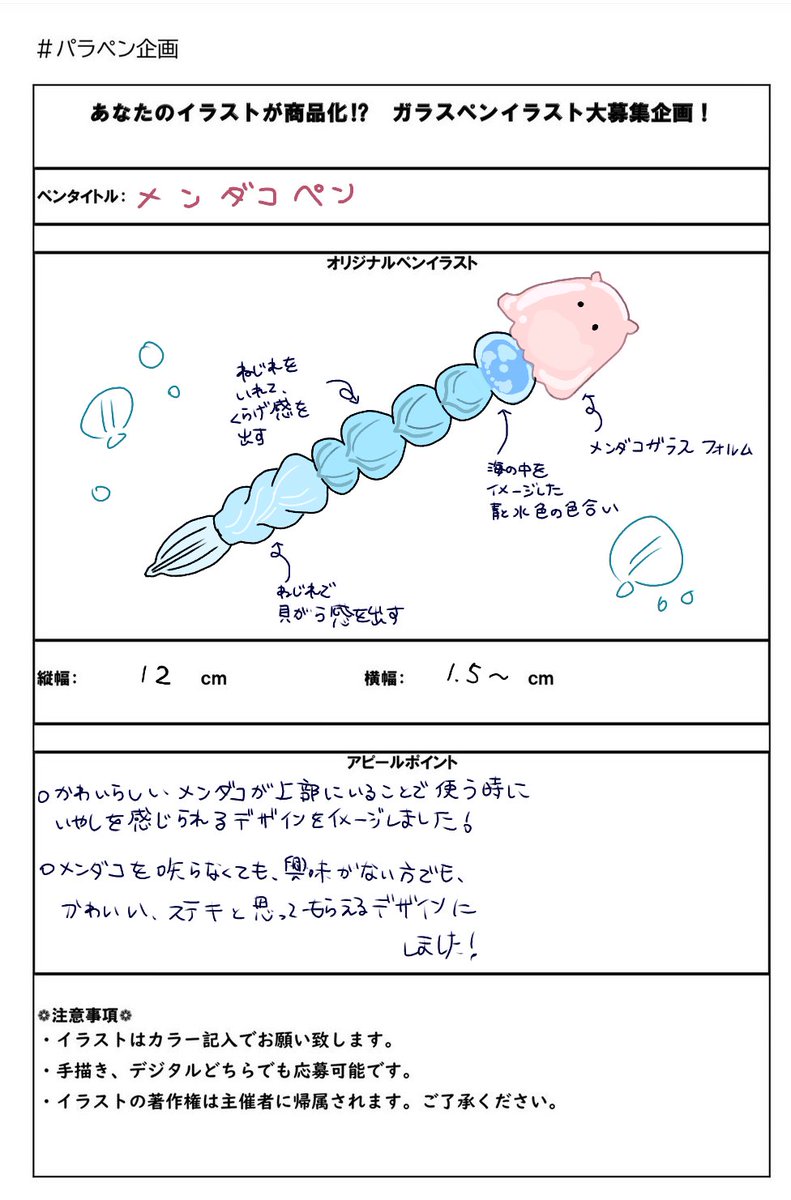 #パラペン企画
あなたのイラストが商品化!?　ガラスペンイラスト大募集企画！
ペンタイトル: メンダコペン
オリジナルペンイラスト
ねじれを
いれて、
くらげ感を
出す
メンダコガラスフォルム
海の中を
イメージした
青と水色の色合い
ねじれで
貝がら感を出す
縦幅: 12 cm
横幅: 1.5～ cm
アピールポイント
○かわいらしいメンダコが上部にいることで使う時に
いやしを感じられるデザインをイメージしました!
○メンダコを知らなくても、興味がない方でも、
かわいい、ステキと思ってもらえるデザインに
しました!
❁注意事項❁
・イラストはカラー記入でお願い致します。
・手描き、デジタルどちらでも応募可能です。
・イラストの著作権は主催者に帰属されます。ご了承ください。